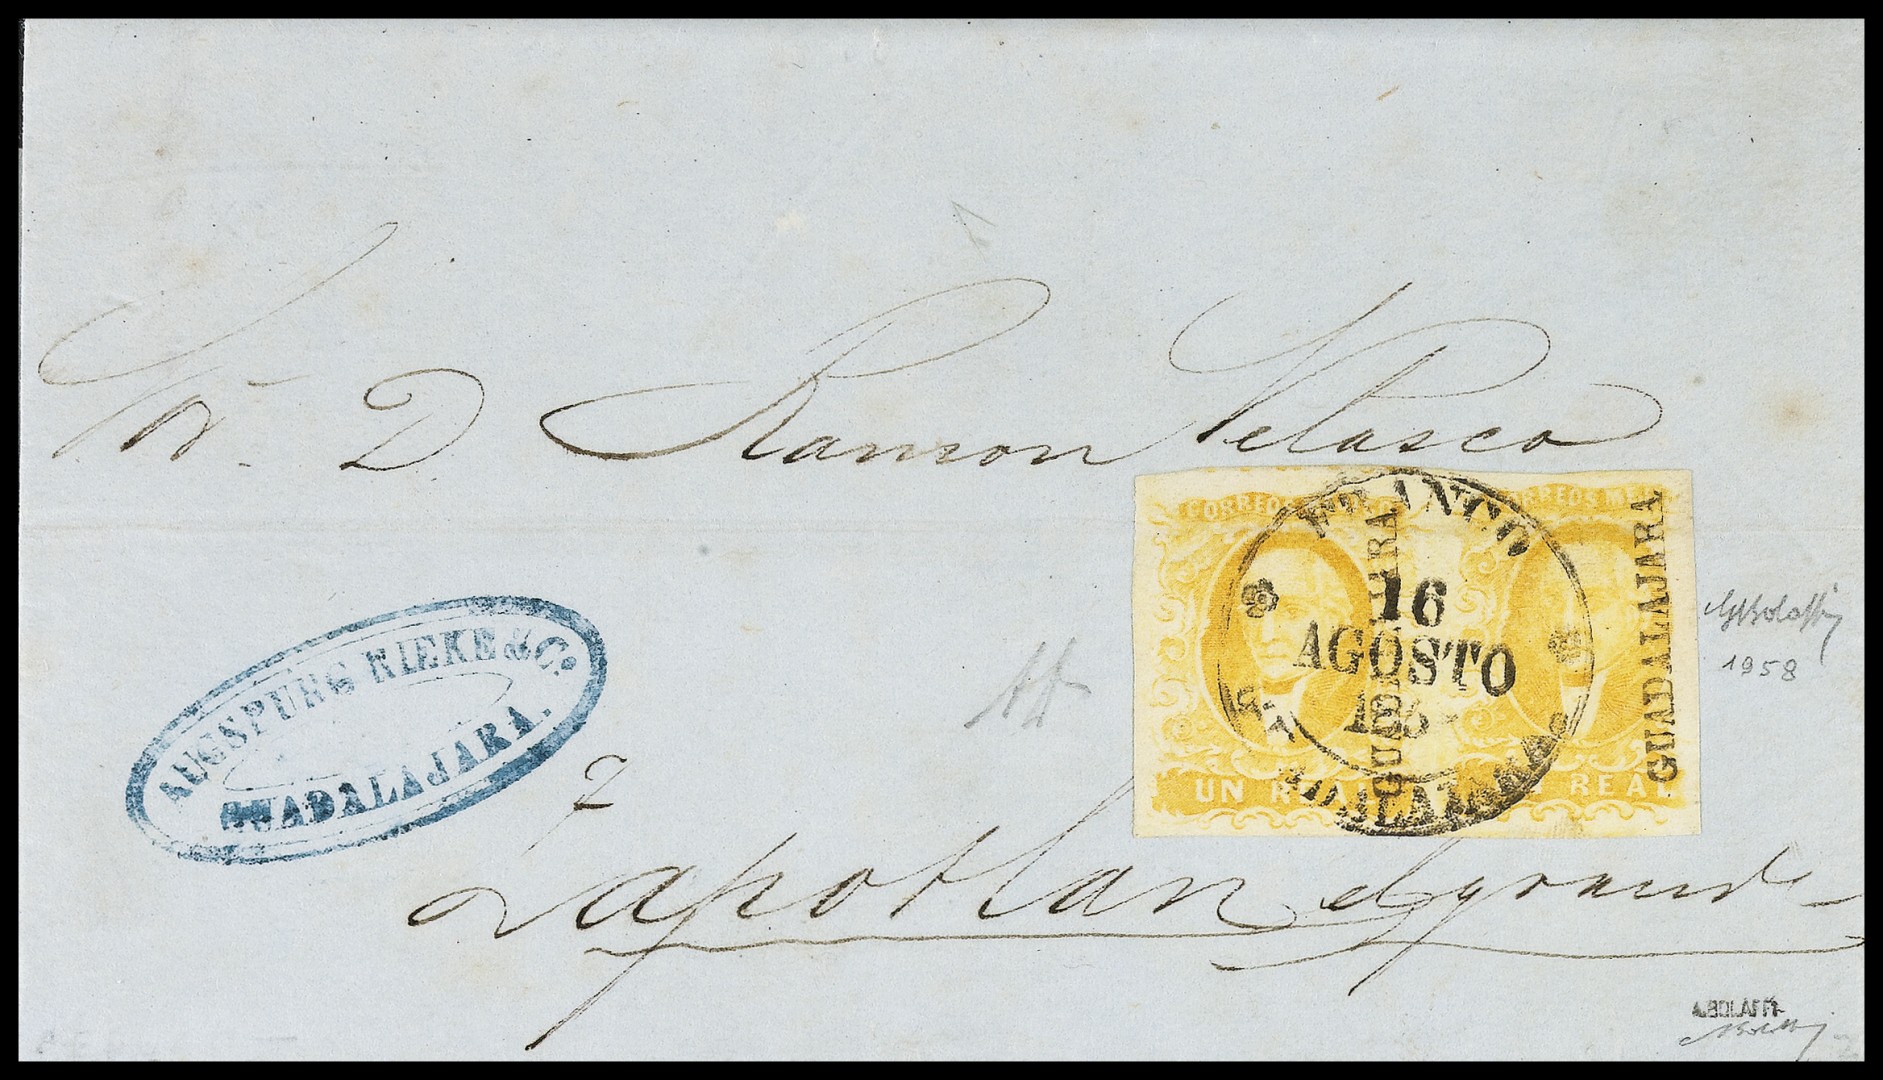 Sr. D Ramon Velasco
CORREOS MEJICO CORREOS MEJ
FRANCO
16
AGOSTO
185
EN GUADALAJARA
UN REAL UN REAL
GUADALAJARA
GUADALAJARA
GBolaffi
1958
AUGSPURG RIEKE & Co.
GUADALAJARA.
7
Zapotlan el grande
A. BOLAFFI